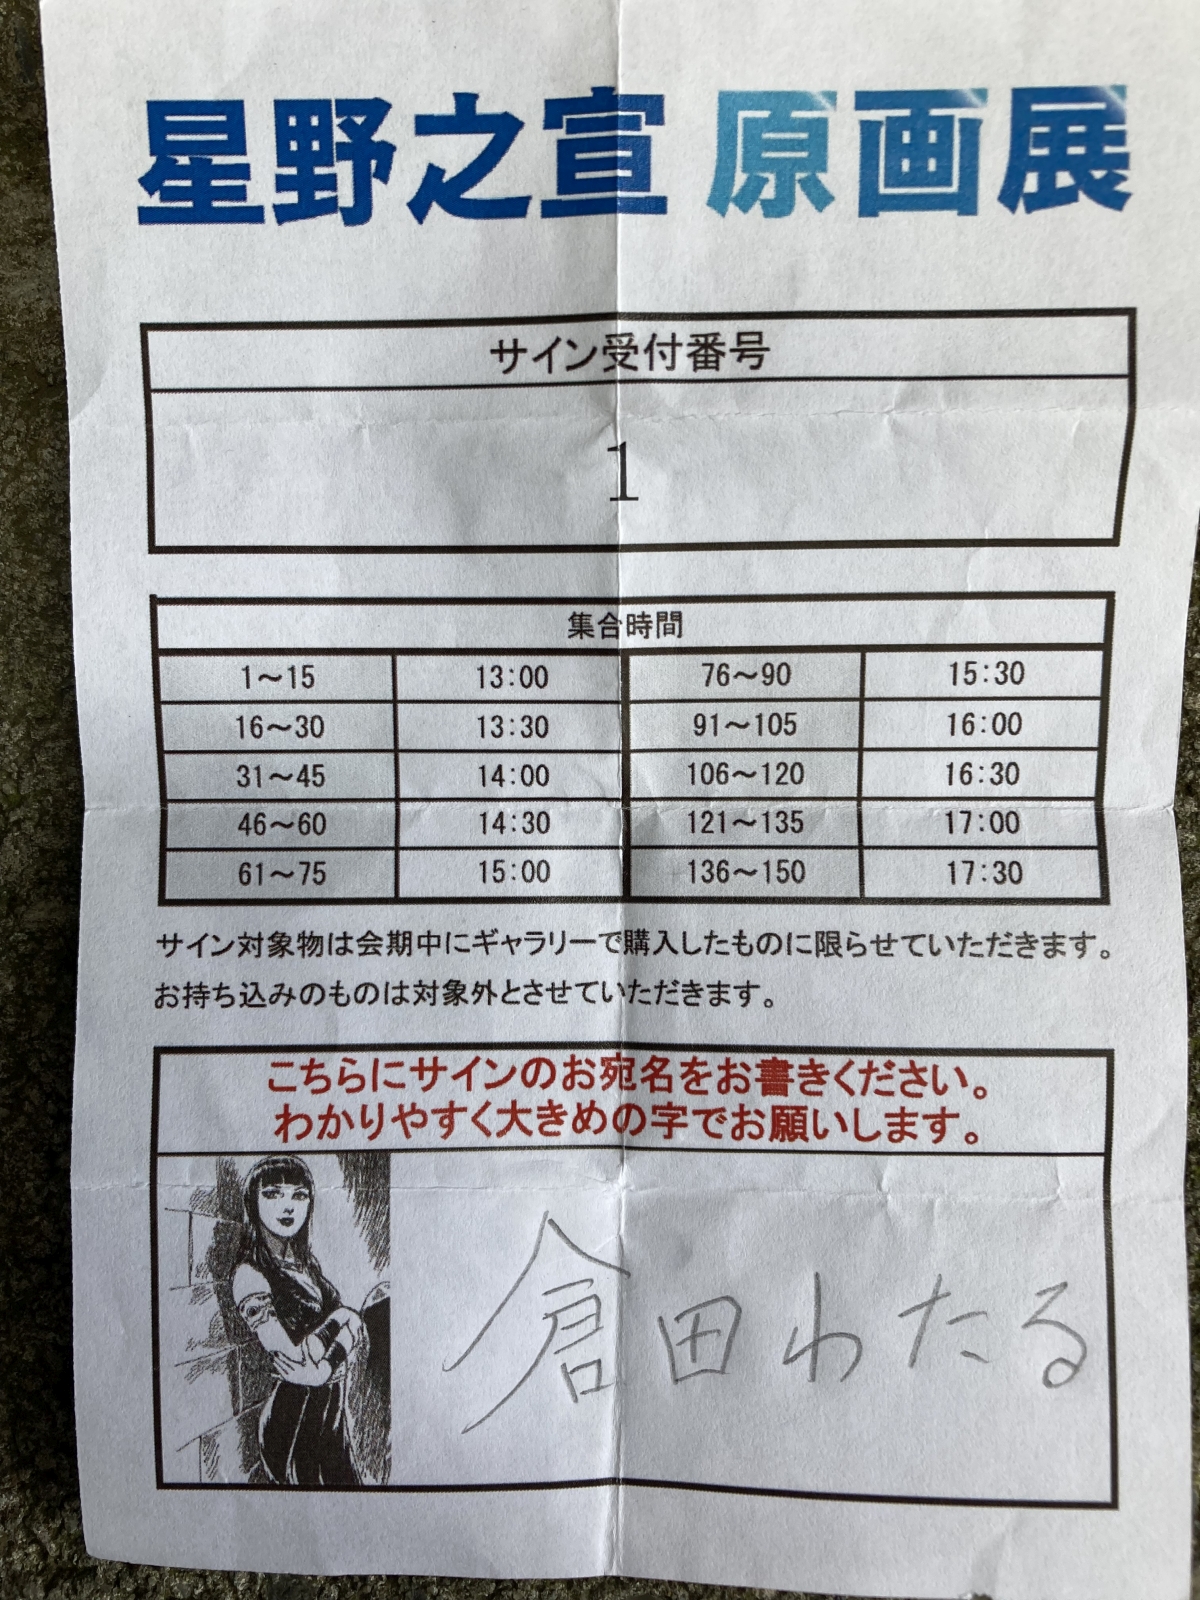 星野之宣 原画展
サイン受付番号
1
集合時間
1～15 13:00 76～90 15:30
16～30 13:30 91～105 16:00
31～45 14:00 106～120 16:30
46～60 14:30 121～135 17:00
61～75 15:00 136～150 17:30
サイン対象物は会期中にギャラリーで購入したものに限らせていただきます。
お持ち込みのものは対象外とさせていただきます。
こちらにサインのお宛名をお書きください。
わかりやすく大きめの字でお願いします。
倉田わたる